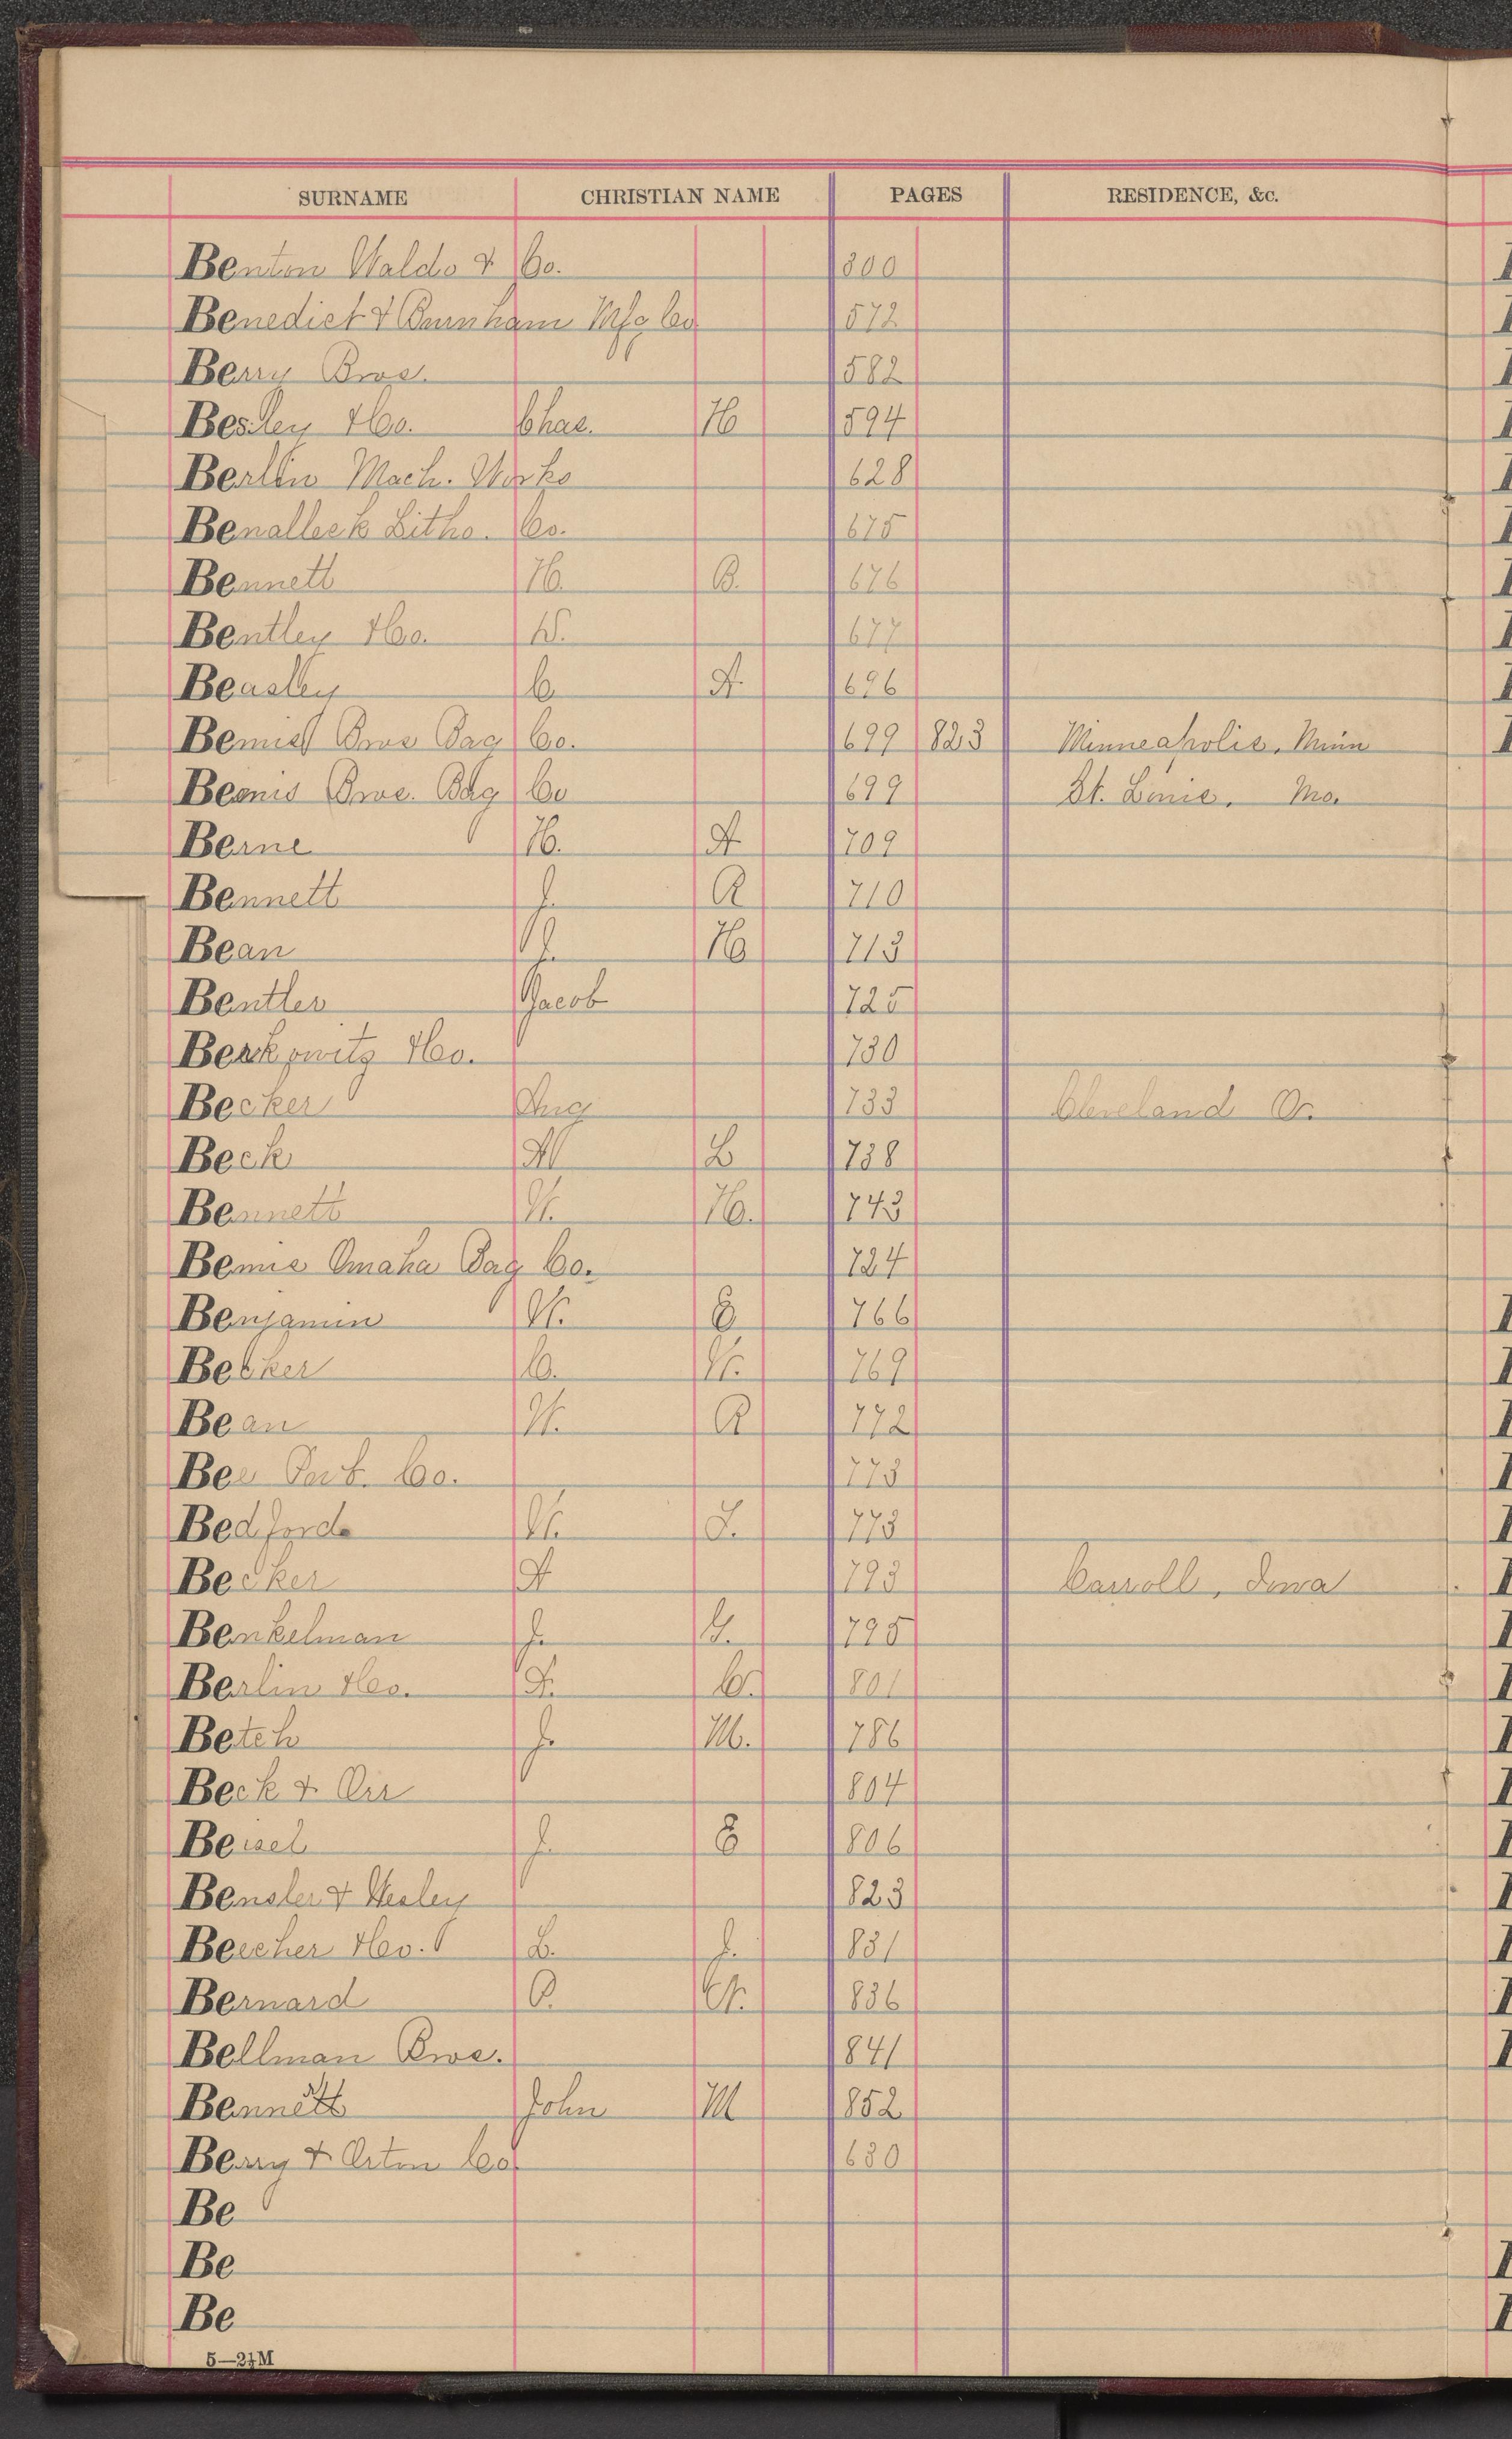 SURNAME CHRISTIAN NAME PAGES RESIDENCE, &c.
Benton Waldo & Co. 300
Benedict & Burnham Mfg Co 572
Berry Bros. 582
Besley & Co. Chas. H 594
Berlin Mach. Works 628
Benalleck Litho. Co. 675
Bennett H. B. 676
Bentley & Co. W. 677
Beasley C A. 696
Bemis Bros Bag Co. 699 823 Minneapolis, Minn
Bemis Bros. Bag Co 699 St. Louis, Mo.
Berne H. A 709
Bennett J. R 710
Bean J. H 713
Bentler Jacob 725
Berkowitz & Co. 730
Becker Aug 733 Cleveland O.
Beck A L 738
Bennett W. H. 743
Bemis Omaha Bag Co. 724
Benjamin W. E 766
Becker C. W. 769
Bean W. R 772
Bee Pub. Co. 773
Bedford W. S. 773
Becker A 793 Carroll, Iowa
Benkelman J. G. 795
Berlin & Co. F. C. 801
Betch J. M. 786
Beck & Orr 804
Beisel J. E 806
Bensler & Wesley 823
Beecher & Co. L. J. 831
Bernard P. 836
Bellman Bros. 841
Bennett John M 852
Berry & Orton Co. 630
Be
Be
Be
5—2½M